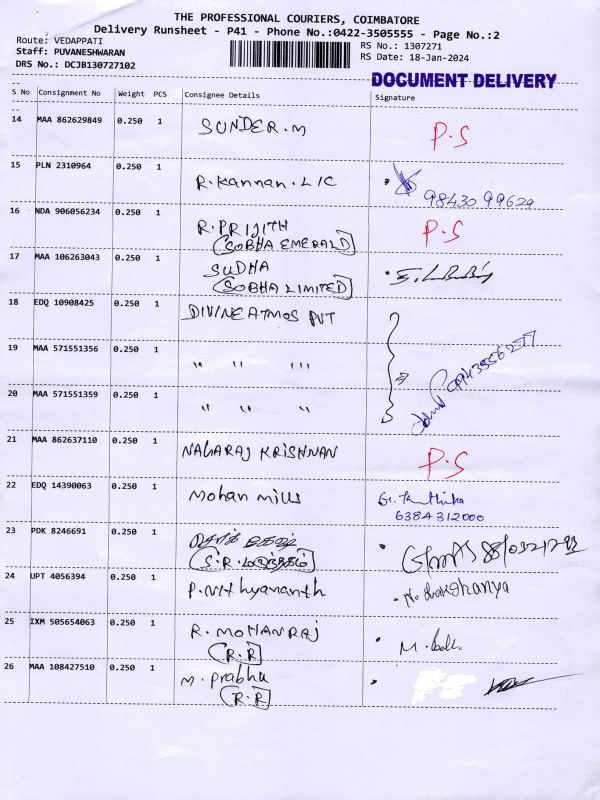 THE PROFESSIONAL COURIERS, COIMBATORE
Delivery Runsheet - P41 - Phone No.:0422-3505555 - Page No.:2
Route: VEDAPPATI
Staff: PUVANESHWARAN
DRS No.: DCJB130727102
RS No.: 1307271
RS Date: 18-Jan-2024
DOCUMENT DELIVERY
S No Consignment No Weight PCS Consignee Details Signature
14 MAA 862629849 0.250 1 SUNDER.M P.S
15 PLN 2310964 0.250 1 R.Kannan.LIC 98430 99629
16 NDA 906056234 0.250 1 R.PRIJITH P.S
(SOBHA EMERALD)
17 MAA 106263043 0.250 1 SUDHA
(SOBHA LIMITED)
18 EDQ 10908425 0.250 1 DIVINE ATMOS PVT
19 MAA 571551356 0.250 1 " " "
20 MAA 571551359 0.250 1 " " "
21 MAA 862637110 0.250 1 NAGARAJ KRISHNAN P.S
22 EDQ 14390063 0.250 1 Mohan Mills
6384312000
23 PDK 8246691 0.250 1
24 UPT 4056394 0.250 1 P.Nithyananth
25 IXM 505654063 0.250 1 R.MOHANRAJ
(R.R)
26 MAA 108427510 0.250 1 M.Prabhu
(R.R)